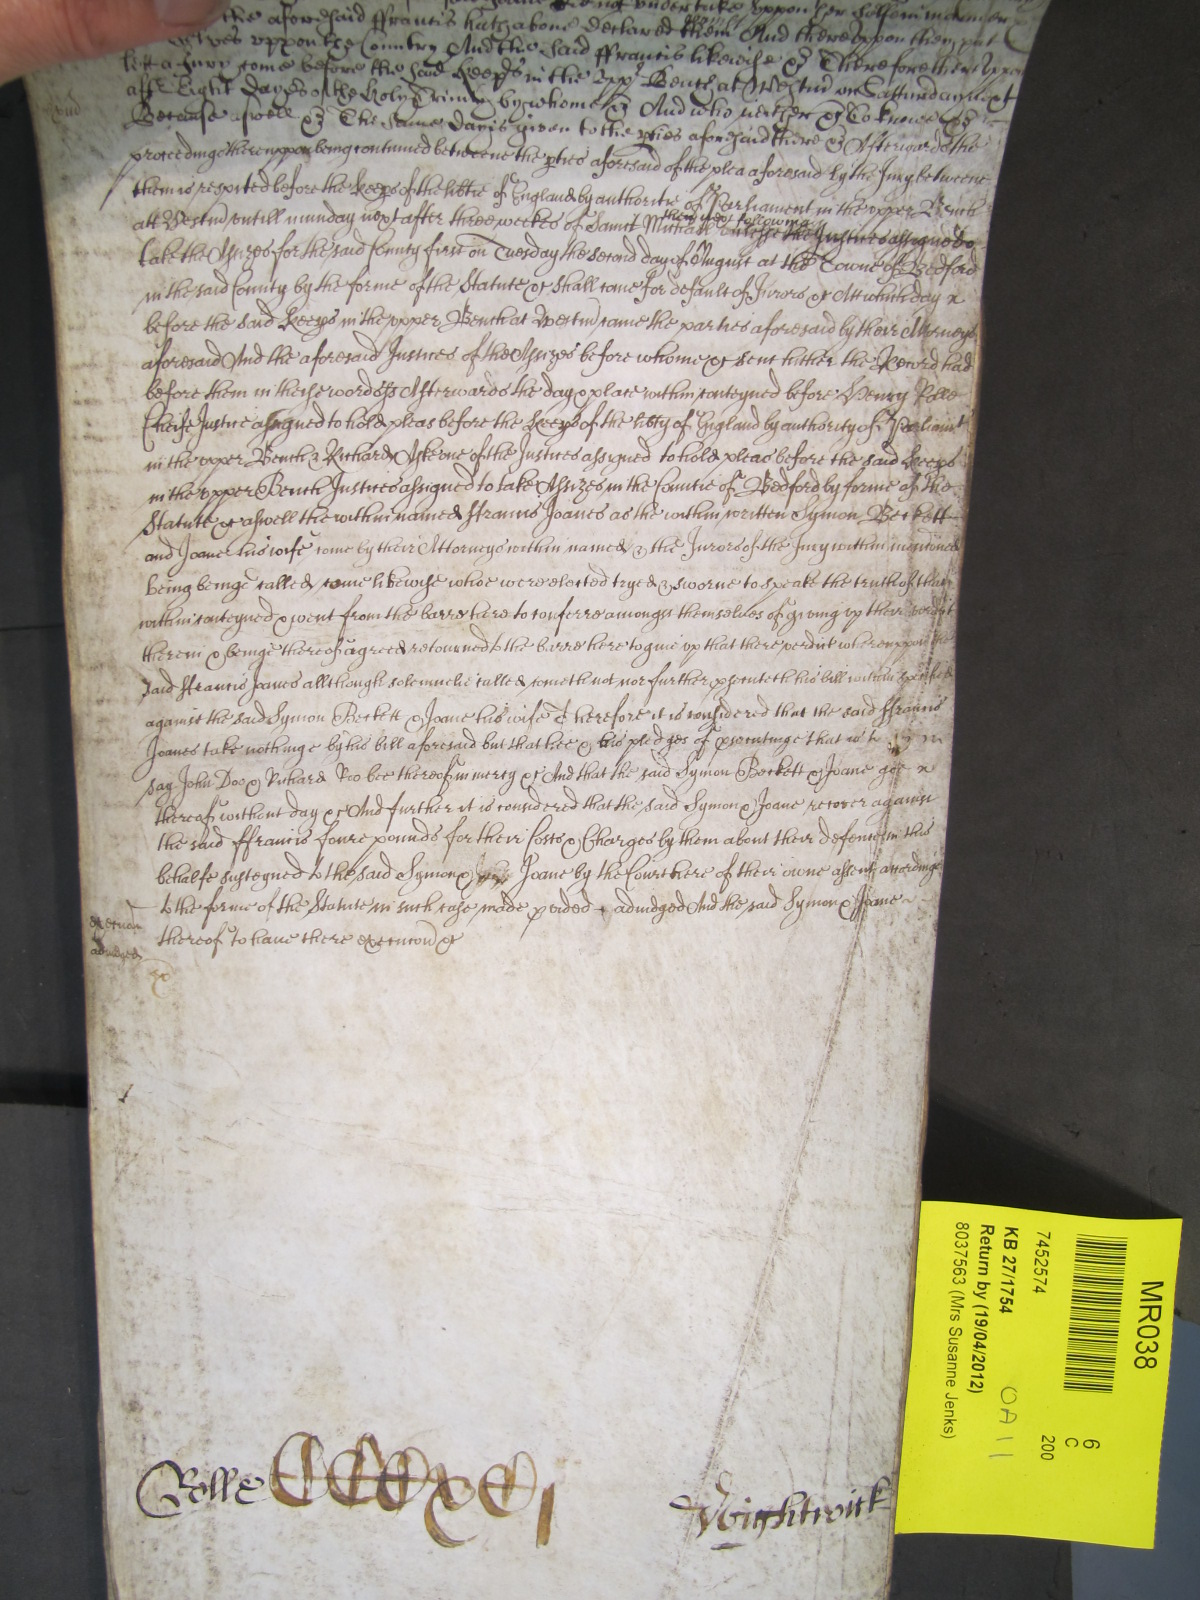 the aforesaid ffrancis hath above declared them And thereuppon they put
uppon the Country And the said ffrancis likewise &c Therefore there uppon
lett a Jury come before the said Keeps in the upp Bench at Westm on Satturday next
aft Eight Dayes of the Holy Trinity by whome &c And who neither &c To knowe &c
Because aswell &c The same day is given to the pties aforesaid there &c Afterwards the
proceedinge thereuppon being continued betweene the pties aforesaid of the plea aforesaid by the Jury betweene
them is respited before the Keeps of the libtie of England by authoritie of Parliament in the upper Bench
att Westm untill munday next after three weekes of Saint Michaell then next followinge unlesse the Justices assigned to
take the Assizes for the said County first on Tuesday the second day of August at the Towne of Bedford
in the said County by the forme of the Statute &c shall come for default of Jurors &c Att which day
before the said Keeps in the upper Bench at Westm came the parties aforesaid by their Attorneys
aforesaid And the aforesaid Justices of the Assizes before whome &c sent hither the Record had
before them in these words ss Afterwards the day & place within conteyned before Henry Rolle
Cheife Justice assigned to hold pleas before the Keeps of the libty of England by authority of Parliamt
in the upper Bench & Richard Aske one of the Justices assigned to hold pleas before the said Keeps
in the upper Bench Justices assigned to take Assizes in the Countie of Bedford by forme of the
Statute &c aswell the within named ffrancis Joanes as the within written Symon Beckett
and Joane his wife come by their Attorneys within named & the Jurors of the Jury within mentioned
being beinge called come likewise whoe were elected tryed & sworne to speake the truth of the
within conteyned & went from the barre here to conferre amongst themselves of giving up their verdict
therein & beinge thereof agreed retourned to the barre here to give up that there verdict whereuppon the
said ffrancis Joanes allthough solemnelie called cometh not nor further psecuteth his bill within specified
against the said Symon Beckett & Joane his wife Therefore it is considered that the said ffrancis
Joanes take nothinge by his bill aforesaid but that hee & his pledges of psecutinge that is to
say John Doe & Richard Roo bee thereof in mercy &c And that the said Symon Beckett & Joane goe
thereof without day &c And further it is considered that the said Symon & Joane recover against
the said ffrancis foure pounds for their Costs & Charges by them about their defence in this
behalfe susteyned to the said Symon & Joane by the Court here of their owne assent accordinge
to the forme of the Statute in such case made pvided & adiudged And the said Symon & Joane
thereof to have there execucon &c
execucon
adiudged
Rolle CCCCxCj
Wightwick
MR038
7452574
KB 27/1754
Return by (19/04/2012)
8037563 (Mrs Susanne Jenks)
6
C
200
OA 11